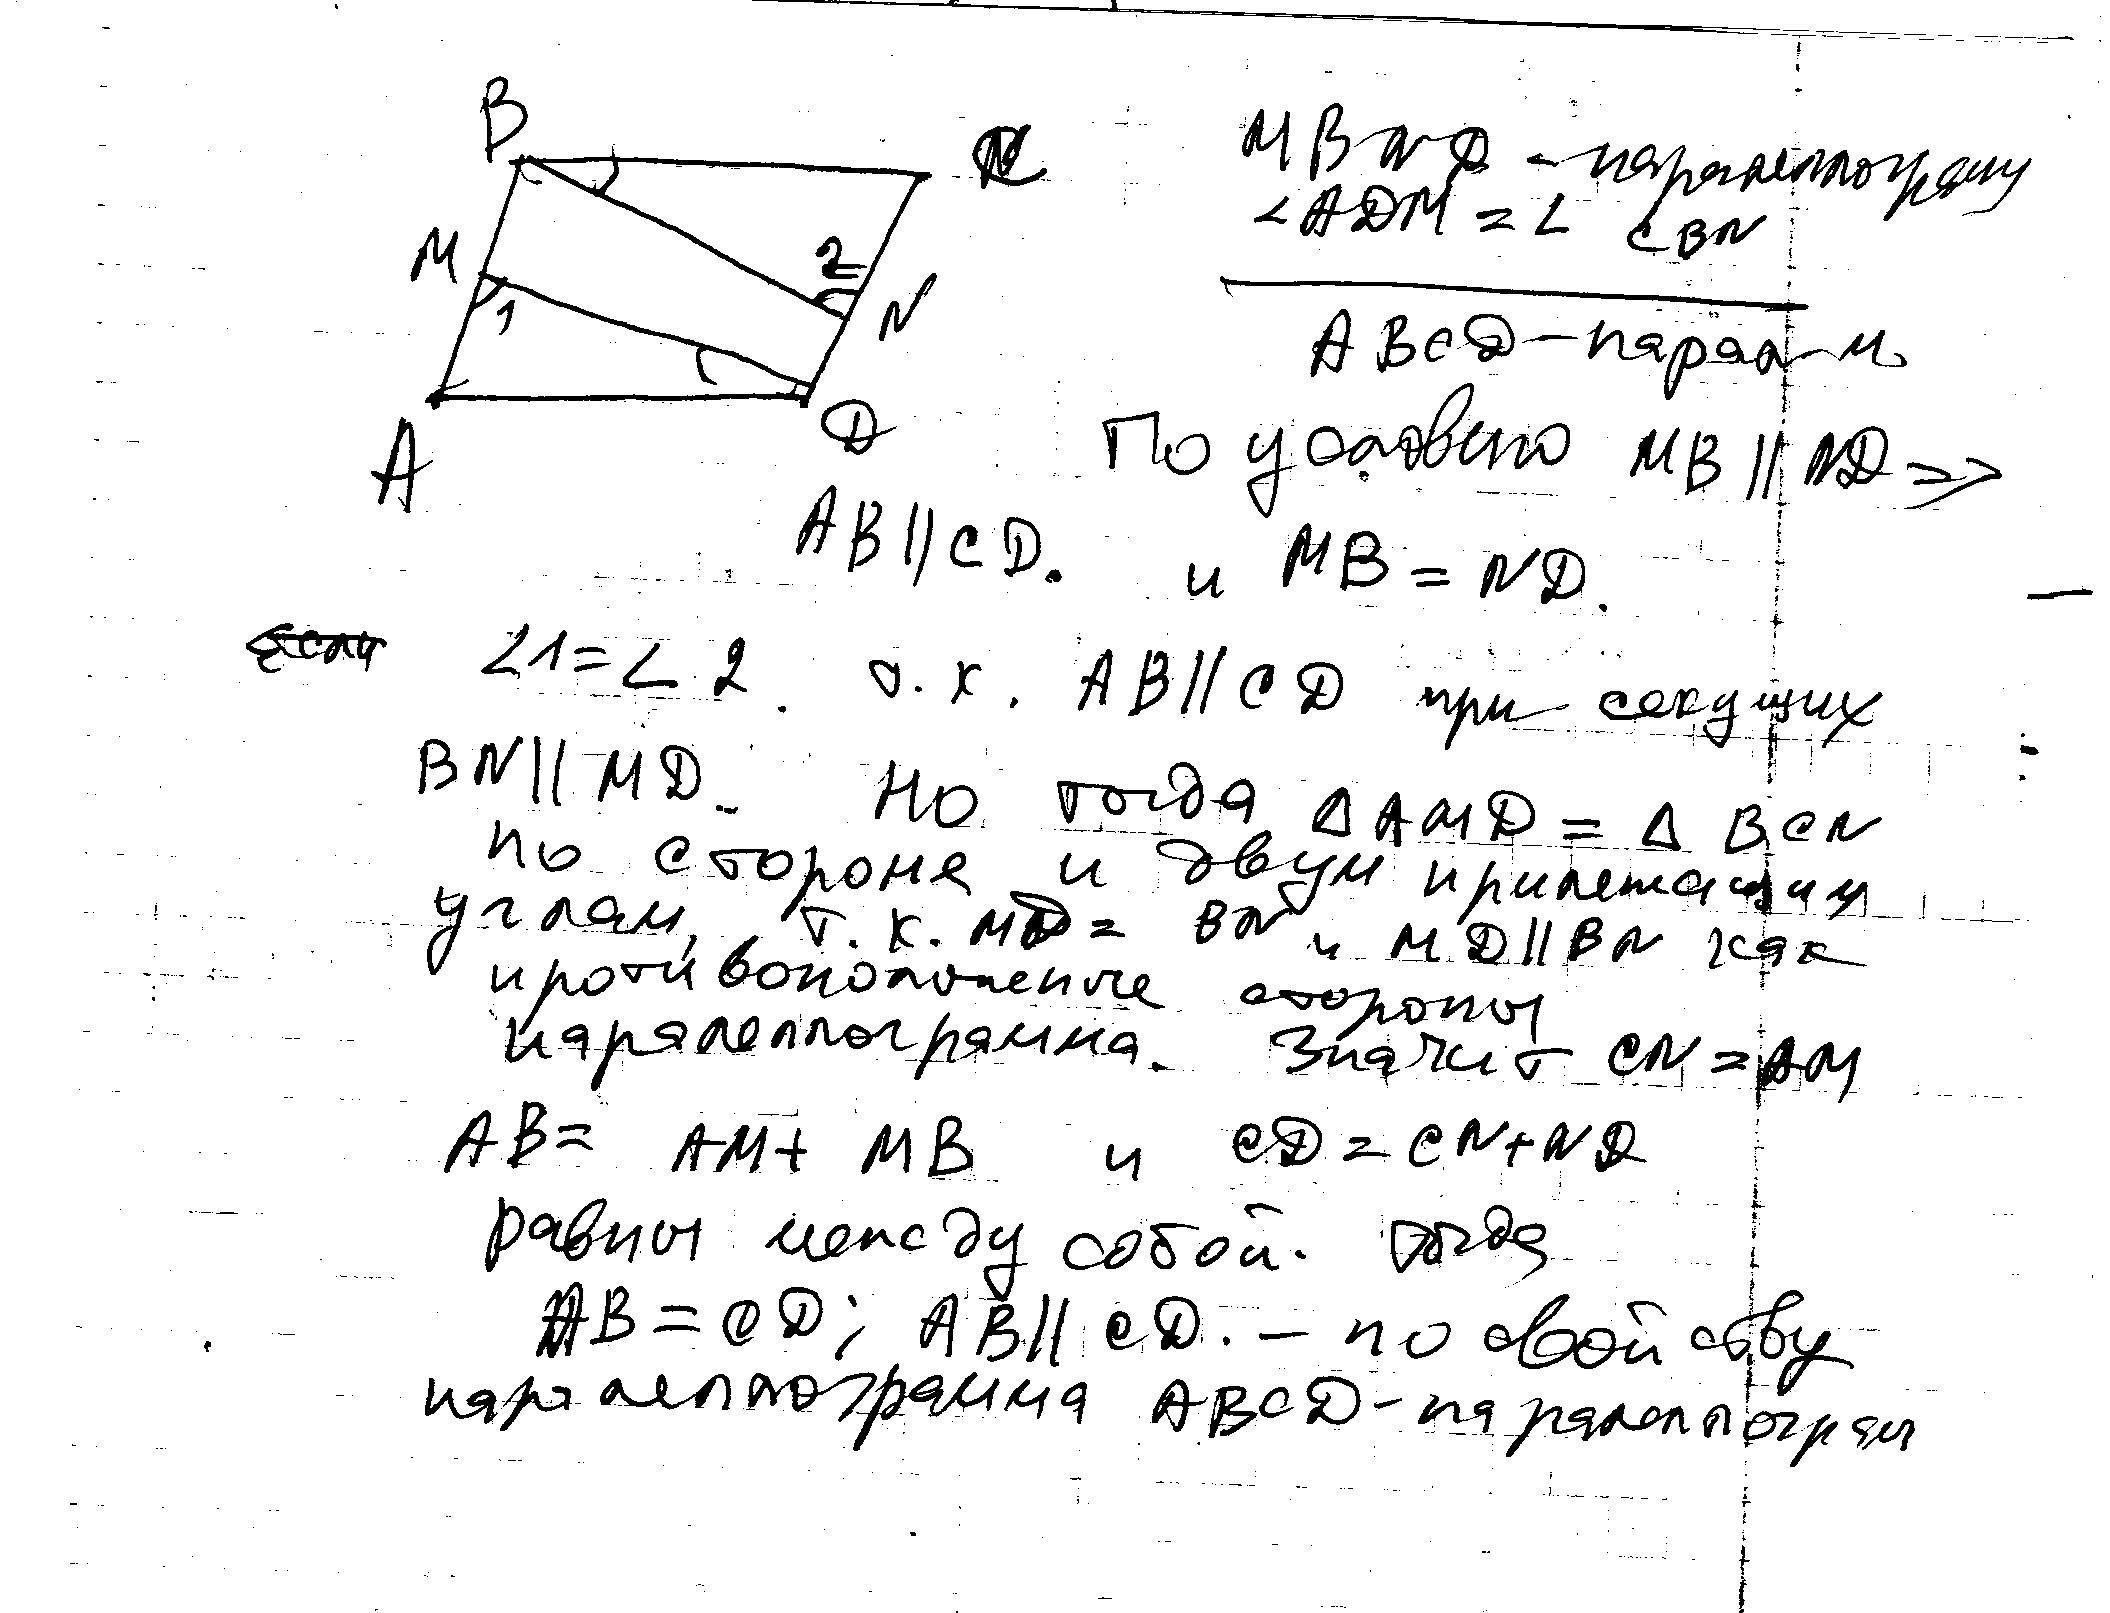 B
C
M
2
1
N
A
D
MBND - параллелограмм
∠ADM = ∠ CBN
ABCD - парал-м
По условию MB || ND =>
AB || CD. и MB = ND.
Если ∠1 = ∠2. т.к. AB || CD при секущих
BN || MD. Но тогда Δ AMD = Δ BCN
по стороне и двум прилежащим
углам, т.к. MD = BN и MD || BN как
противоположные стороны
параллелограмма. Значит CN = AM
AB = AM + MB и CD = CN + ND
равны между собой. Тогда
AB = CD; AB || CD. - по свойству
параллелограмма ABCD - параллелограм